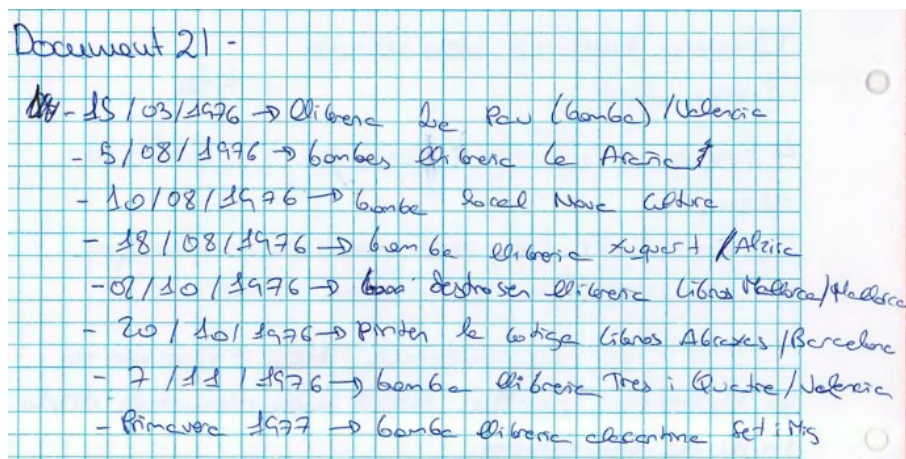 Document 21 -
- 15/03/1976 → llibreria La Pau (bomba) / Valencia
- 5/08/1976 → bombes llibreria la Araña
- 10/08/1976 → bomba local Nova Cultura
- 18/08/1976 → bomba llibreria Xuquer / Alzira
- 02/10/1976 → destrosen llibreria Libros Mallorca/Mallorca
- 20/10/1976 → pinten la botiga Libros Abraxas /Barcelona
- 7/11/1976 → bomba llibreria Tres i Quatre/Valencia
- Primavera 1977 → bomba llibreria alacantina Set i Mig